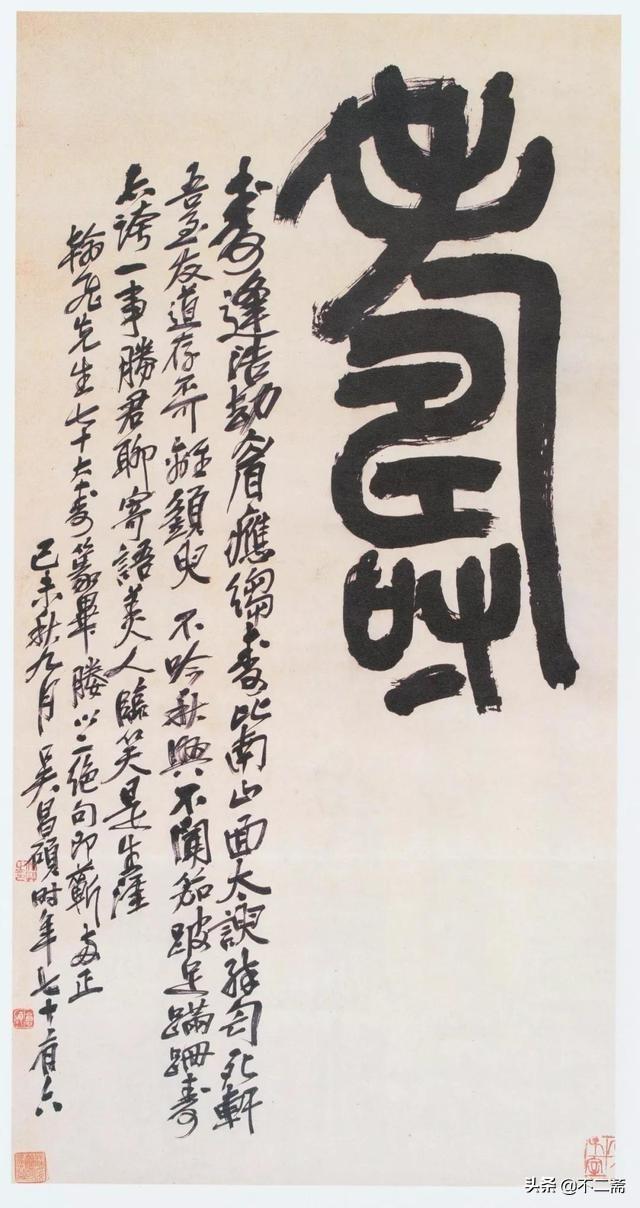 壽
書壽逢浩劫眉應縐壽比南山面太諛
軒
吾至友道存不可離頞 不吟秋興不聞名跛足蹣跚壽
亦誇一事勝君聊寄語美人臨笑是生
翰飛先生七十六壽篆畢媵以二絕句即蘄兩正
己未秋九月吳昌碩時年七十有六
头条 @不二斋